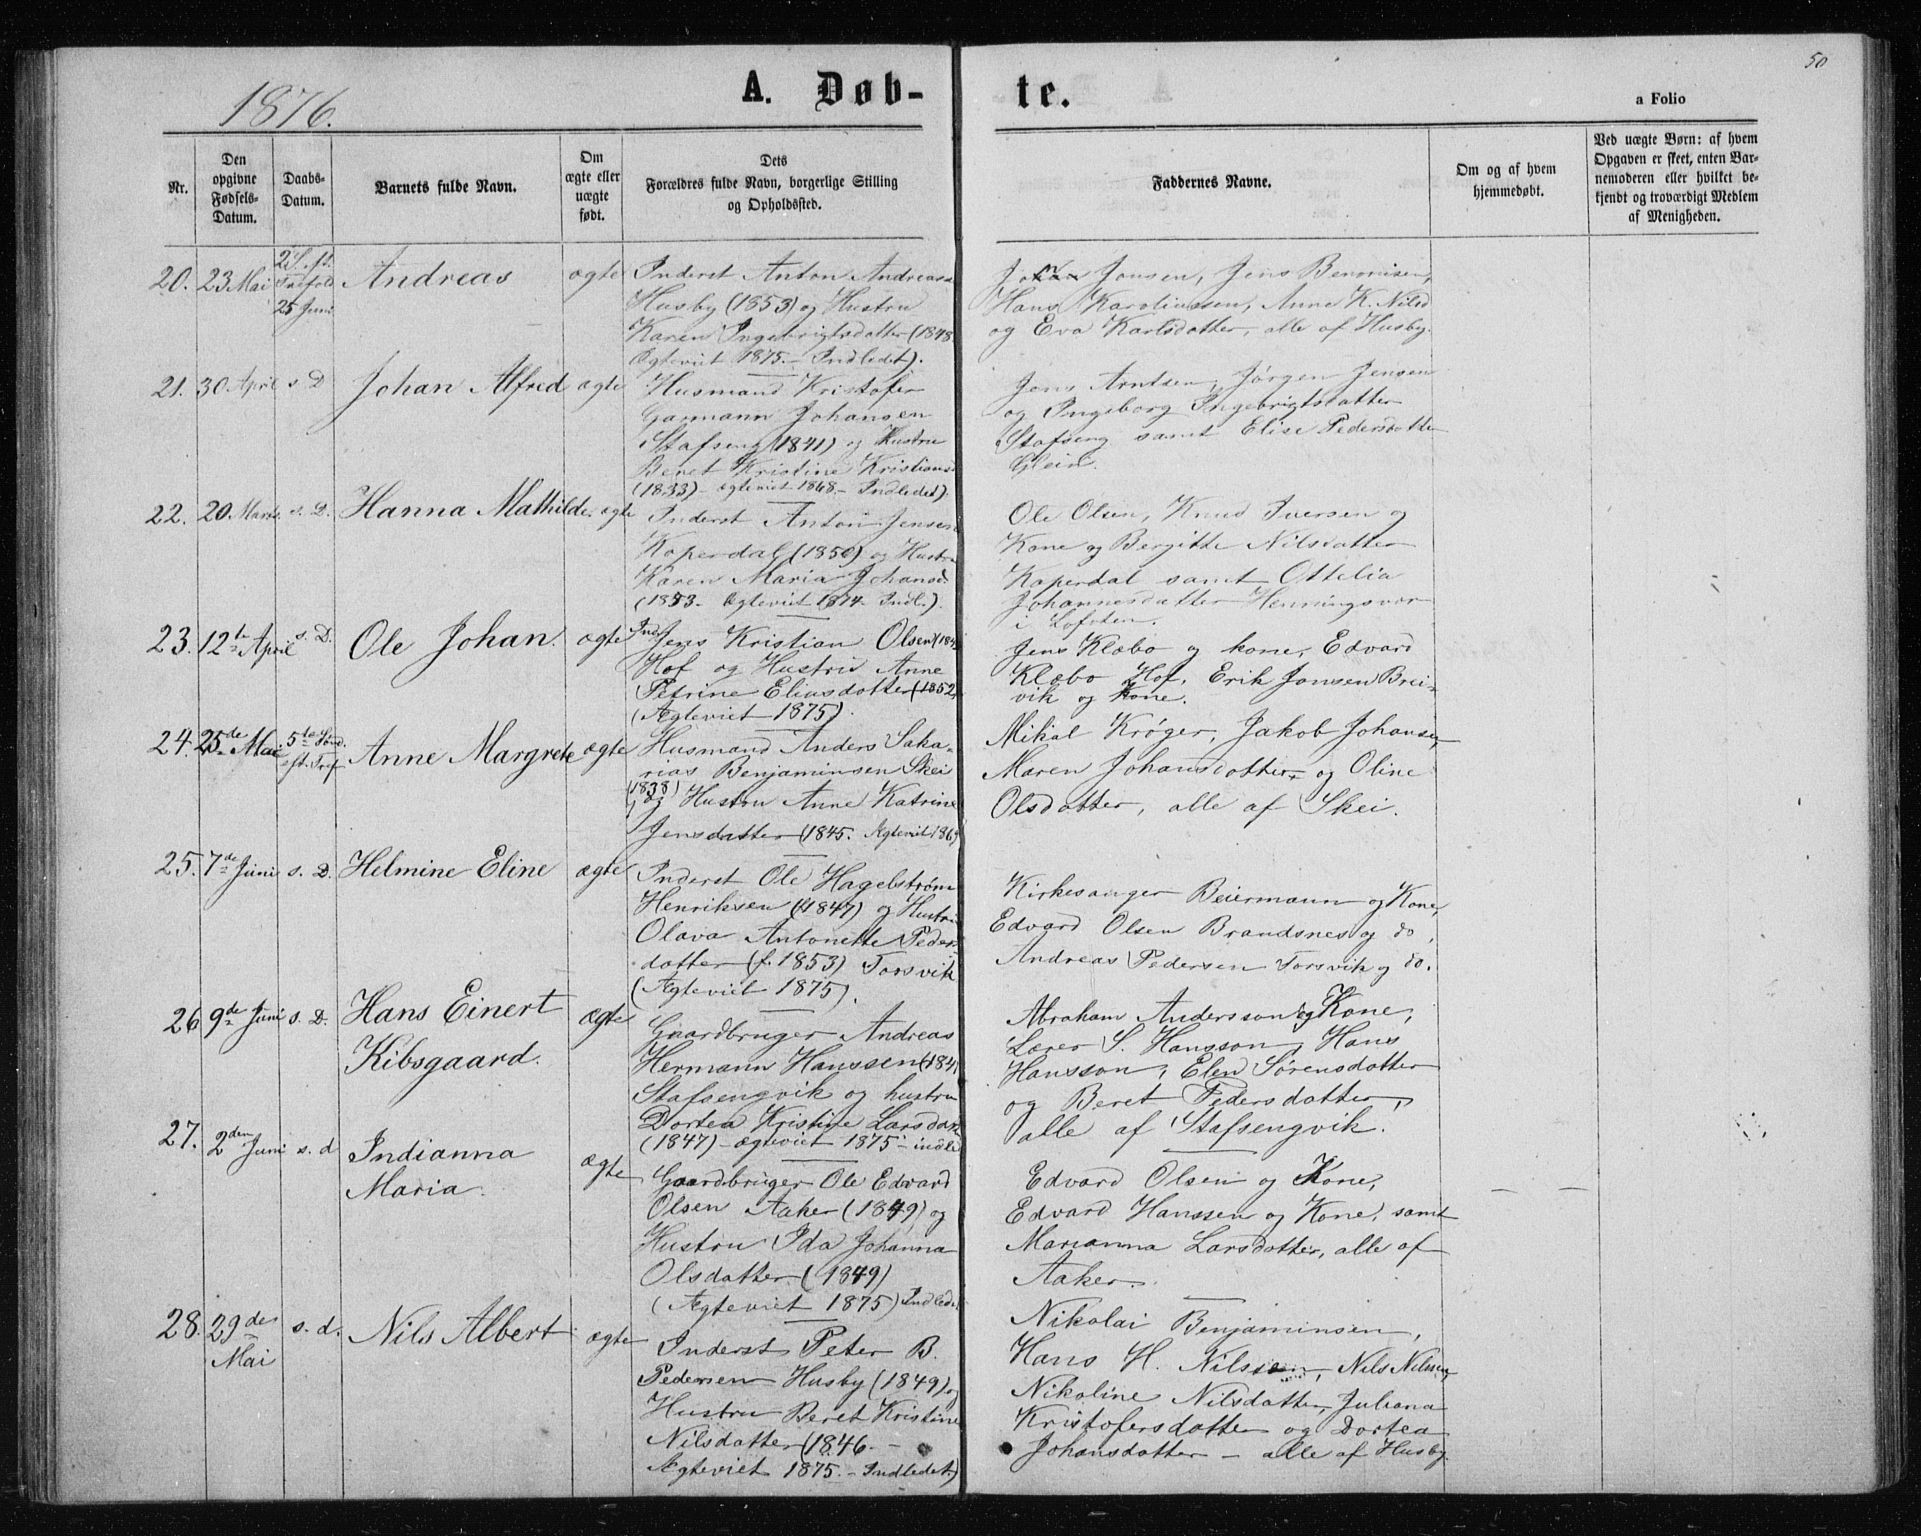 50
1876.
A. Døb-
te.
a Folio
Nr.
Den
opgivne
Fødsels-
Datum.
Daabs-
Datum.
Barnets fulde Navn.
Om
ægte eller
uægte
født.
Dets
Forældres fulde Navn, borgerlige Stilling
og Opholdssted.
Faddernes Navne.
Om og af hvem
hjemmedøbt.
Ved uægte Børn: af hvem
Opgaven er skeet, enten Bar-
nemoderen eller hvilket be-
kjendt og troværdigt Medlem
af Menigheden.
20. 23 Mai
Trefold
25 Juni
Andreas
ægte
Inderst Anton Andreas
Husby (1853) og Hustru
Karen Ingebrigtsdatter (1848
Ægteviet 1875. - Indledet).
Jonsen, Jens Benonisen,
Hans Karoliussen, Anne K. Nilsd
og Eva Karlsdatter, alle af Husby.
21. 30 April s. D.
Johan Alfred
ægte
Husmand Kristofer
Garmann Johansen
Stafseng (1841) og Hustru
Beret Kristine Kristiansd
(1833) - ægteviet 1868. - Indledet).
Jens Arntsen, Jørgen Jensen
og Ingeborg Ingebrigtsdatter
Stafseng samt Elise Pedersdatter
Glein.
22. 20 Marts s. D.
Hanna Mathilde
ægte
Inderst Anton Jensen
Koperdal (1850) og Hustru
Karen Maria Johansd.
(1853. Ægteviet 1874. Indl.).
Ole Olsen, Knud Iversen og
Kone og Bergitte Nilsdatter
Koperdal samt Ottelia
Johannesdatter Henningsvær
i Lofoten.
23. 12te April s. D.
Ole Johan.
ægte
Ind. Jens Kristian Olsen (184
Hof og Hustru Anne
Petrine Eliasdatter (1852)
(Ægteviet 1875).
Jens Klæbo og kone, Edvard
Klæbo Hof, Erik Jonsen Brei-
vik og Kone.
24. 25de Mai
5te Sønd.
eft. Tref.
Anne Margrete
ægte
Husmand Anders Saka-
rias Benjaminsen Skei
(1838) og Hustru Anne Katrine
Jensdatter (1845. Ægteviet 186
Mikal Krøger, Jakob Johansen,
Maren Johansdatter og Oline
Olsdatter, alle af Skei.
25. 7de Juni s. D.
Helmine Eline
ægte
Inderst Ole Hagelstrøm
Henriksen (1847) og Hustru
Olava Antonette Peders
datter (f. 1853) Torsvik
(Ægteviet 1875).
Kirkesanger Beiermann og Kone,
Edvard Olsen Brandsnes og do,
Andreas Pedersen Torsvik og do.
26 9de Juni s. D.
Hans Einert
Kibsgaard.
ægte
Gaardbruger Andreas
Hermann Hanssen (184
Stafsengvik og hustru
Dortea Kristine Larsdat
(1847) - ægteviet 1875 - indle
Abraham Andersson og Kone,
Lærer S. Hansson, Hans
Hansson, Elen Sørensdatter
og Beret Pedersdatter,
alle af Stafsengvik.
27. 2den Juni s. d
Indianna
Maria.
ægte
Gaardbruger Ole Edvard
Olsen Aaker (1849) og
Hustru Ida Johanna
Olsdatter (1849)
(Ægteviet 1875) Indlede
Edvard Olsen og Kone,
Edvard Hanssen og Kone, samt
Marianna Larsdatter, alle af
Aaker.
28. 29de
Mai
s. d.
Nils Albert
ægte
Inderst Peter B.
Pedersen Husby (1849) og
Hustru Beret Kristine
Nilsdatter (1846. -
Ægteviet 1875. - Indledet)
Nikolai Benjaminsen,
Hans H. Nilssen, Nils Nilssen,
Nikoline Nilsdatter, Juliana
Kristofersdatter og Dortea
Johansdatter - alle af Husby.